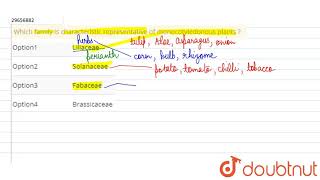 29656882
Which family is characteristic representative of monocotyledonous plants ?
herbs
tulip, Aloe, asparagus, onion
Option1 Liliaceae
perianth corm, bulb, rhizome
Option2 Solanaceae potato, tomato, chilli, tobacco
Option3 Fabaceae
Option4 Brassicaceae
doubtnut